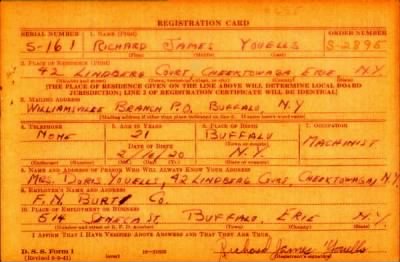 REGISTRATION CARD
SERIAL NUMBER 1. NAME (Print) ORDER NUMBER
S-161 RICHARD JAMES YOUELLS S-2895
(First) (Middle) (Last)
2. PLACE OF RESIDENCE (Print)
42 LINDBERG COURT, CHEEKTOWAGA ERIE N.Y.
(THE PLACE OF RESIDENCE GIVEN ON THE LINE ABOVE WILL DETERMINE LOCAL BOARD
JURISDICTION; LINE 2 OF REGISTRATION CERTIFICATE WILL BE IDENTICAL)
3. MAILING ADDRESS
WILLIAMSVILLE BRANCH P.O. BUFFALO, N.Y
4. TELEPHONE 5. AGE IN YEARS 6. PLACE OF BIRTH 7. OCCUPATION
NONE 21 BUFFALO MACHINIST
DATE OF BIRTH
2/16/20 N.Y.
8. NAME AND ADDRESS OF PERSON WHO WILL ALWAYS KNOW YOUR ADDRESS
MRS. DORIS YOUELLS, 42 LINDBERG COURT, CHEEKTOWAGA, N.Y.
9. EMPLOYER'S NAME AND ADDRESS
F. N. BURT CO.
10. PLACE OF EMPLOYMENT OR BUSINESS
514 SENECA ST. BUFFALO, ERIE N.Y.
I AFFIRM THAT I HAVE VERIFIED ABOVE ANSWERS AND THAT THEY ARE TRUE.
D. S. S. Form 1
Richard James Youells